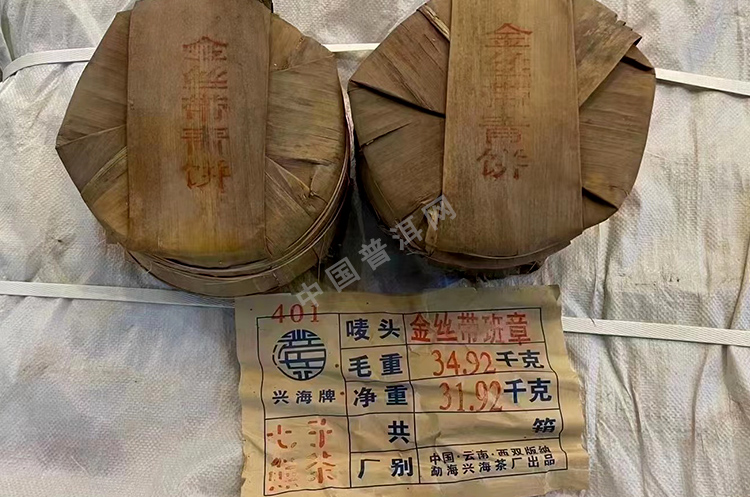 金丝带青饼
金丝带青饼
中国普洱网
401
兴海牌
七子
熊茶
唛头 金丝带班章
毛重 34.92千克
净重 31.92千克
共
厂别 中国·云南·西双版纳
勐海兴海茶厂出品